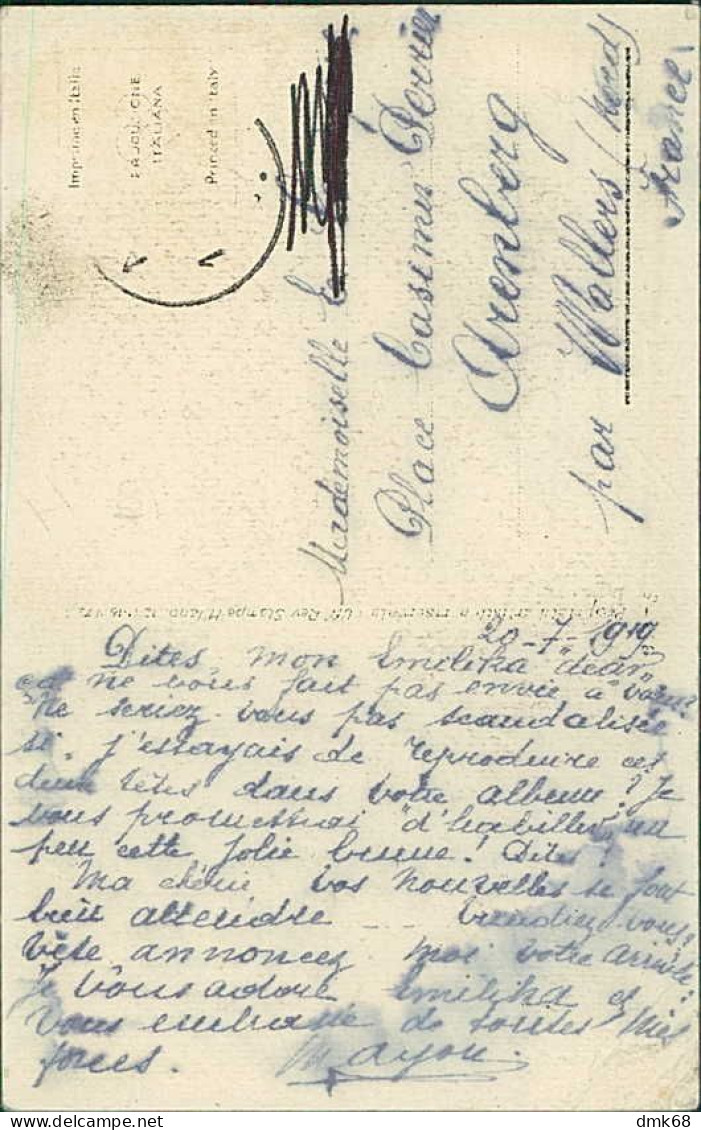 Imprimé en Italie
PRODUZIONE
ITALIANA
Printed in Italy
Mademoiselle E
Place Casimir Perrier
Arenberg
par Wallers (Nord)
France
20-7-1919
Dites, mon Emilika "dear"
ne vous fait pas envie à vous?
ne seriez vous pas scandalisée
si j'essayais de reproduire ces
deux têtes dans votre album? Je
vous promettrai "d'habiller" un
peu cette jolie brune! Dites!
Ma chérie vos nouvelles se font
bien attendre viendiez vous,
vite annoncez moi votre arrivée
Je vous adore Emilika et
vous embrasse de toutes mes
forces. Mayou.
dmk68